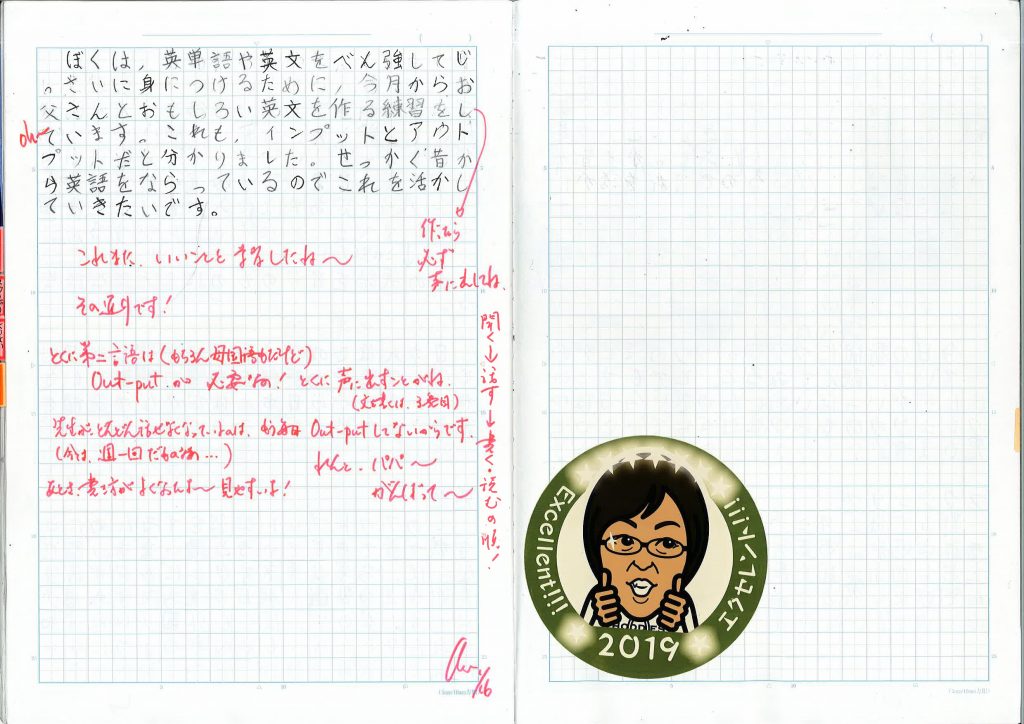 ぼくは,英単語や英文をべん強してじ
っさいに身につけるために,今月からお
父さんとおもしろい英文を作る練習をし
ています。これも,インプットとアウト
プットだと分かりました。せっかく昔か
ら英語をならっているのでこれを活かし
ていきたいです。
oh~
作ったら
必ず
声に出してね。
これまた、いいことを学習したね〜
その通りです!
とくに第二言語は(もちろん母国語もだけど)
Out-putが必要なの!とくに声に出すことがね。
(文を書くは、3番目)
先生がどんどん話せなくなっているのは、毎日Out-putしてないからです。
(今は、週一回だものなぁ…)
れんと、パパ〜
がんばって〜
あとさ、書き方がよくなったね〜見やすいよ!
聞く→話す→書く・読むの順!
1/26
Excellent!!!
エクセレント!!!
2019